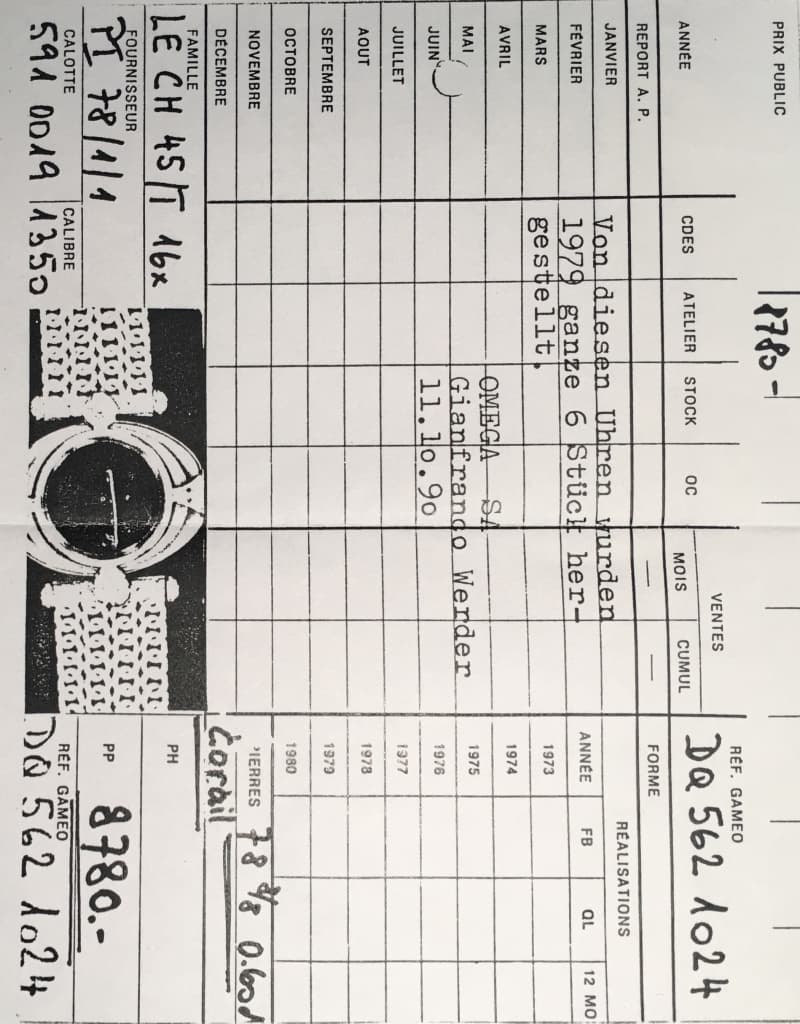 PRIX PUBLIC
8780.-
ANNÉE CDES ATELIER STOCK OC VENTES
MOIS CUMUL
RÉF. GAMEO
DQ 562 1024
REPORT A. P. — —
FORME
RÉALISATIONS
JANVIER
FÉVRIER
MARS
AVRIL
MAI
JUIN
JUILLET
AOUT
SEPTEMBRE
OCTOBRE
NOVEMBRE
DÉCEMBRE
Von diesen Uhren wurden
1979 ganze 6 Stück her-
gestellt.
OMEGA SA
Gianfranco Werder
11.10.90
ANNÉE FB QL 12 MO
1973
1974
1975
1976
1977
1978
1979
1980
PIERRES 78 8/8
Corail
FAMILLE
LE CH 45/T 16x
FOURNISSEUR
PI 78/1/1
CALOTTE
591 0019
CALIBRE
1350
PH
PP
8780.-
RÉF. GAMEO
DQ 562 1024